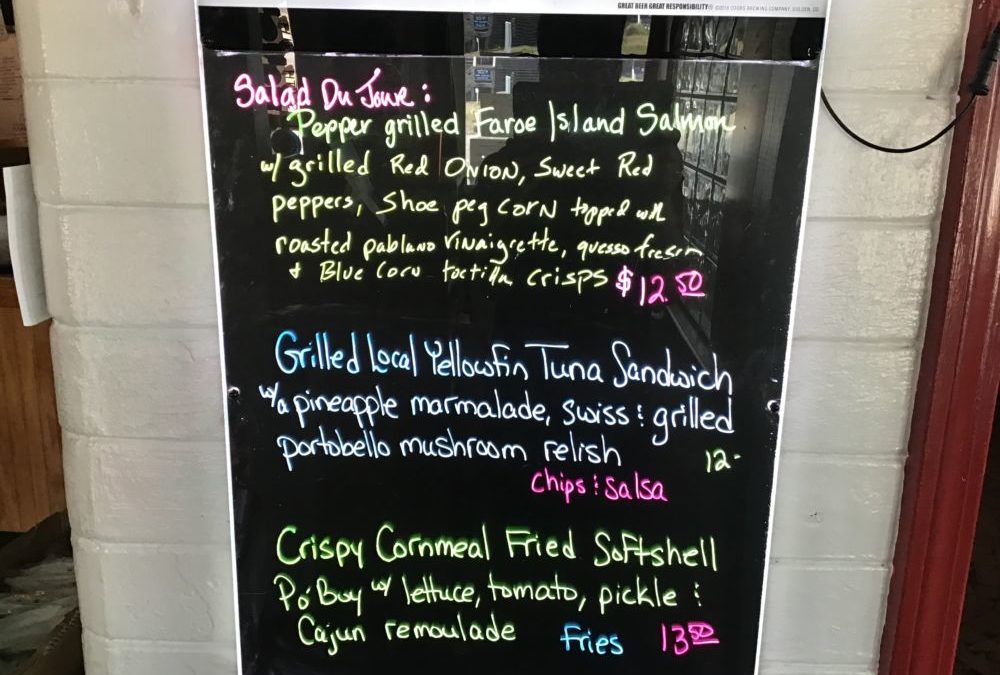 GREAT BEER GREAT RESPONSIBILITY® ©2016 COORS BREWING COMPANY, GOLDEN, CO
Salad Du Joure :
Pepper grilled Faroe Island Salmon
w/ grilled Red Onion, Sweet Red
peppers, Shoe peg corn topped with
roasted pablano vinaigrette, quesso fresco
+ Blue Corn tortilla crisps $12.50
Grilled Local Yellowfin Tuna Sandwich
w/ a pineapple marmalade, swiss & grilled
portobello mushroom relish 12-
chips & salsa
Crispy Cornmeal Fried Softshell
Po'Boy w/ lettuce, tomato, pickle &
Cajun remoulade Fries 13.50